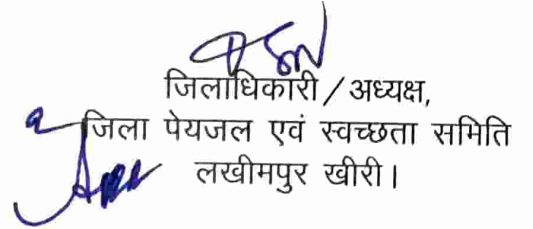 जिलाधिकारी/अध्यक्ष,
जिला पेयजल एवं स्वच्छता समिति
लखीमपुर खीरी।